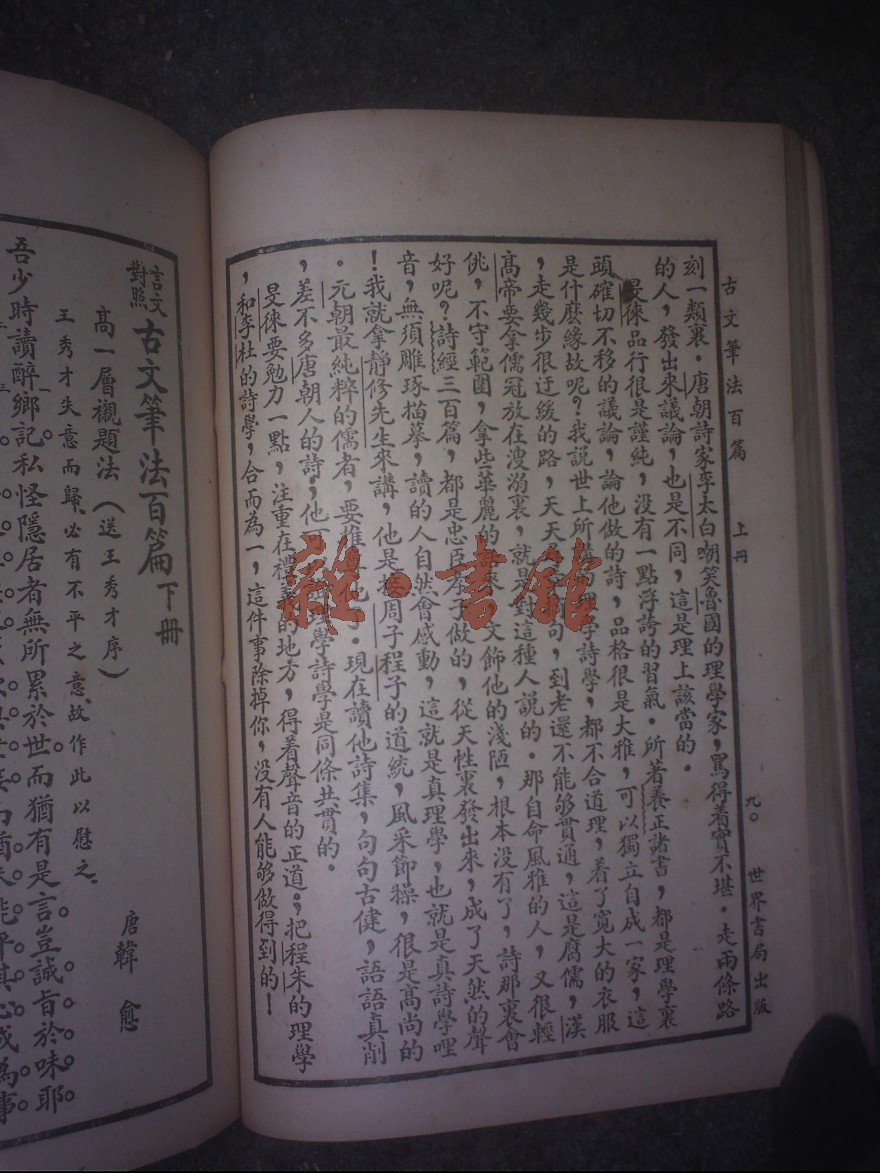 古文筆法百篇 上冊 九〇 世界書局出版
刻一類裏．唐朝詩家李太白嘲笑魯國的理學家，罵得着實不堪．走兩條路
的人，發出來議論，也是不同，這是理上該當的．
旻徠品行很是謹純，没有一點浮誇的習氣．所著養正諸書，都是理學裏
頭確切不移的議論，論他做的詩，品格很是大雅，可以獨立自成一家，這
是什麽緣故呢？我説世上所 學詩學，都不合道理，着了寬大的衣服
，走幾步很迂緩的路，天天 句，到老還不能够貫通，這是腐儒，漢
高帝要拿儒冠放在溲溺裏，就是對這種人説的．那自命風雅的人，又很輕
佻，不守範圍，拿些華麗的 文飾他的淺陋，根本没有了，詩那裏會
好呢？詩經三百篇，都是忠臣孝子做的，從天性裏發出來，成了天然的聲
音，無須雕琢描摹，讀的人自然會感動，這就是真理學，也就是真詩學哩
！我就拿靜修先生來講，他是接周子程子的道統，風采節操，很是高尚的
．元朝最純粹的儒者，要推 ．現在讀他詩集，句句古健，語語真削
，差不多唐朝人的詩，他 理學詩學是同條共貫的．
旻徠要勉力一點，注重在禮義的地方，得着聲音的正道，把程朱的理學
，和李杜的詩學，合而為一，這件事除掉你，没有人能够做得到的！
言文對照 古文筆法百篇 下冊
高一層襯題法（送王秀才序） 唐韓愈
王秀才失意而歸、必有不平之意、故作此以慰之、
吾少時讀醉鄉記私怪隱居者無所累於世。而猶有是言。豈誠旨於味耶。
雜·書館